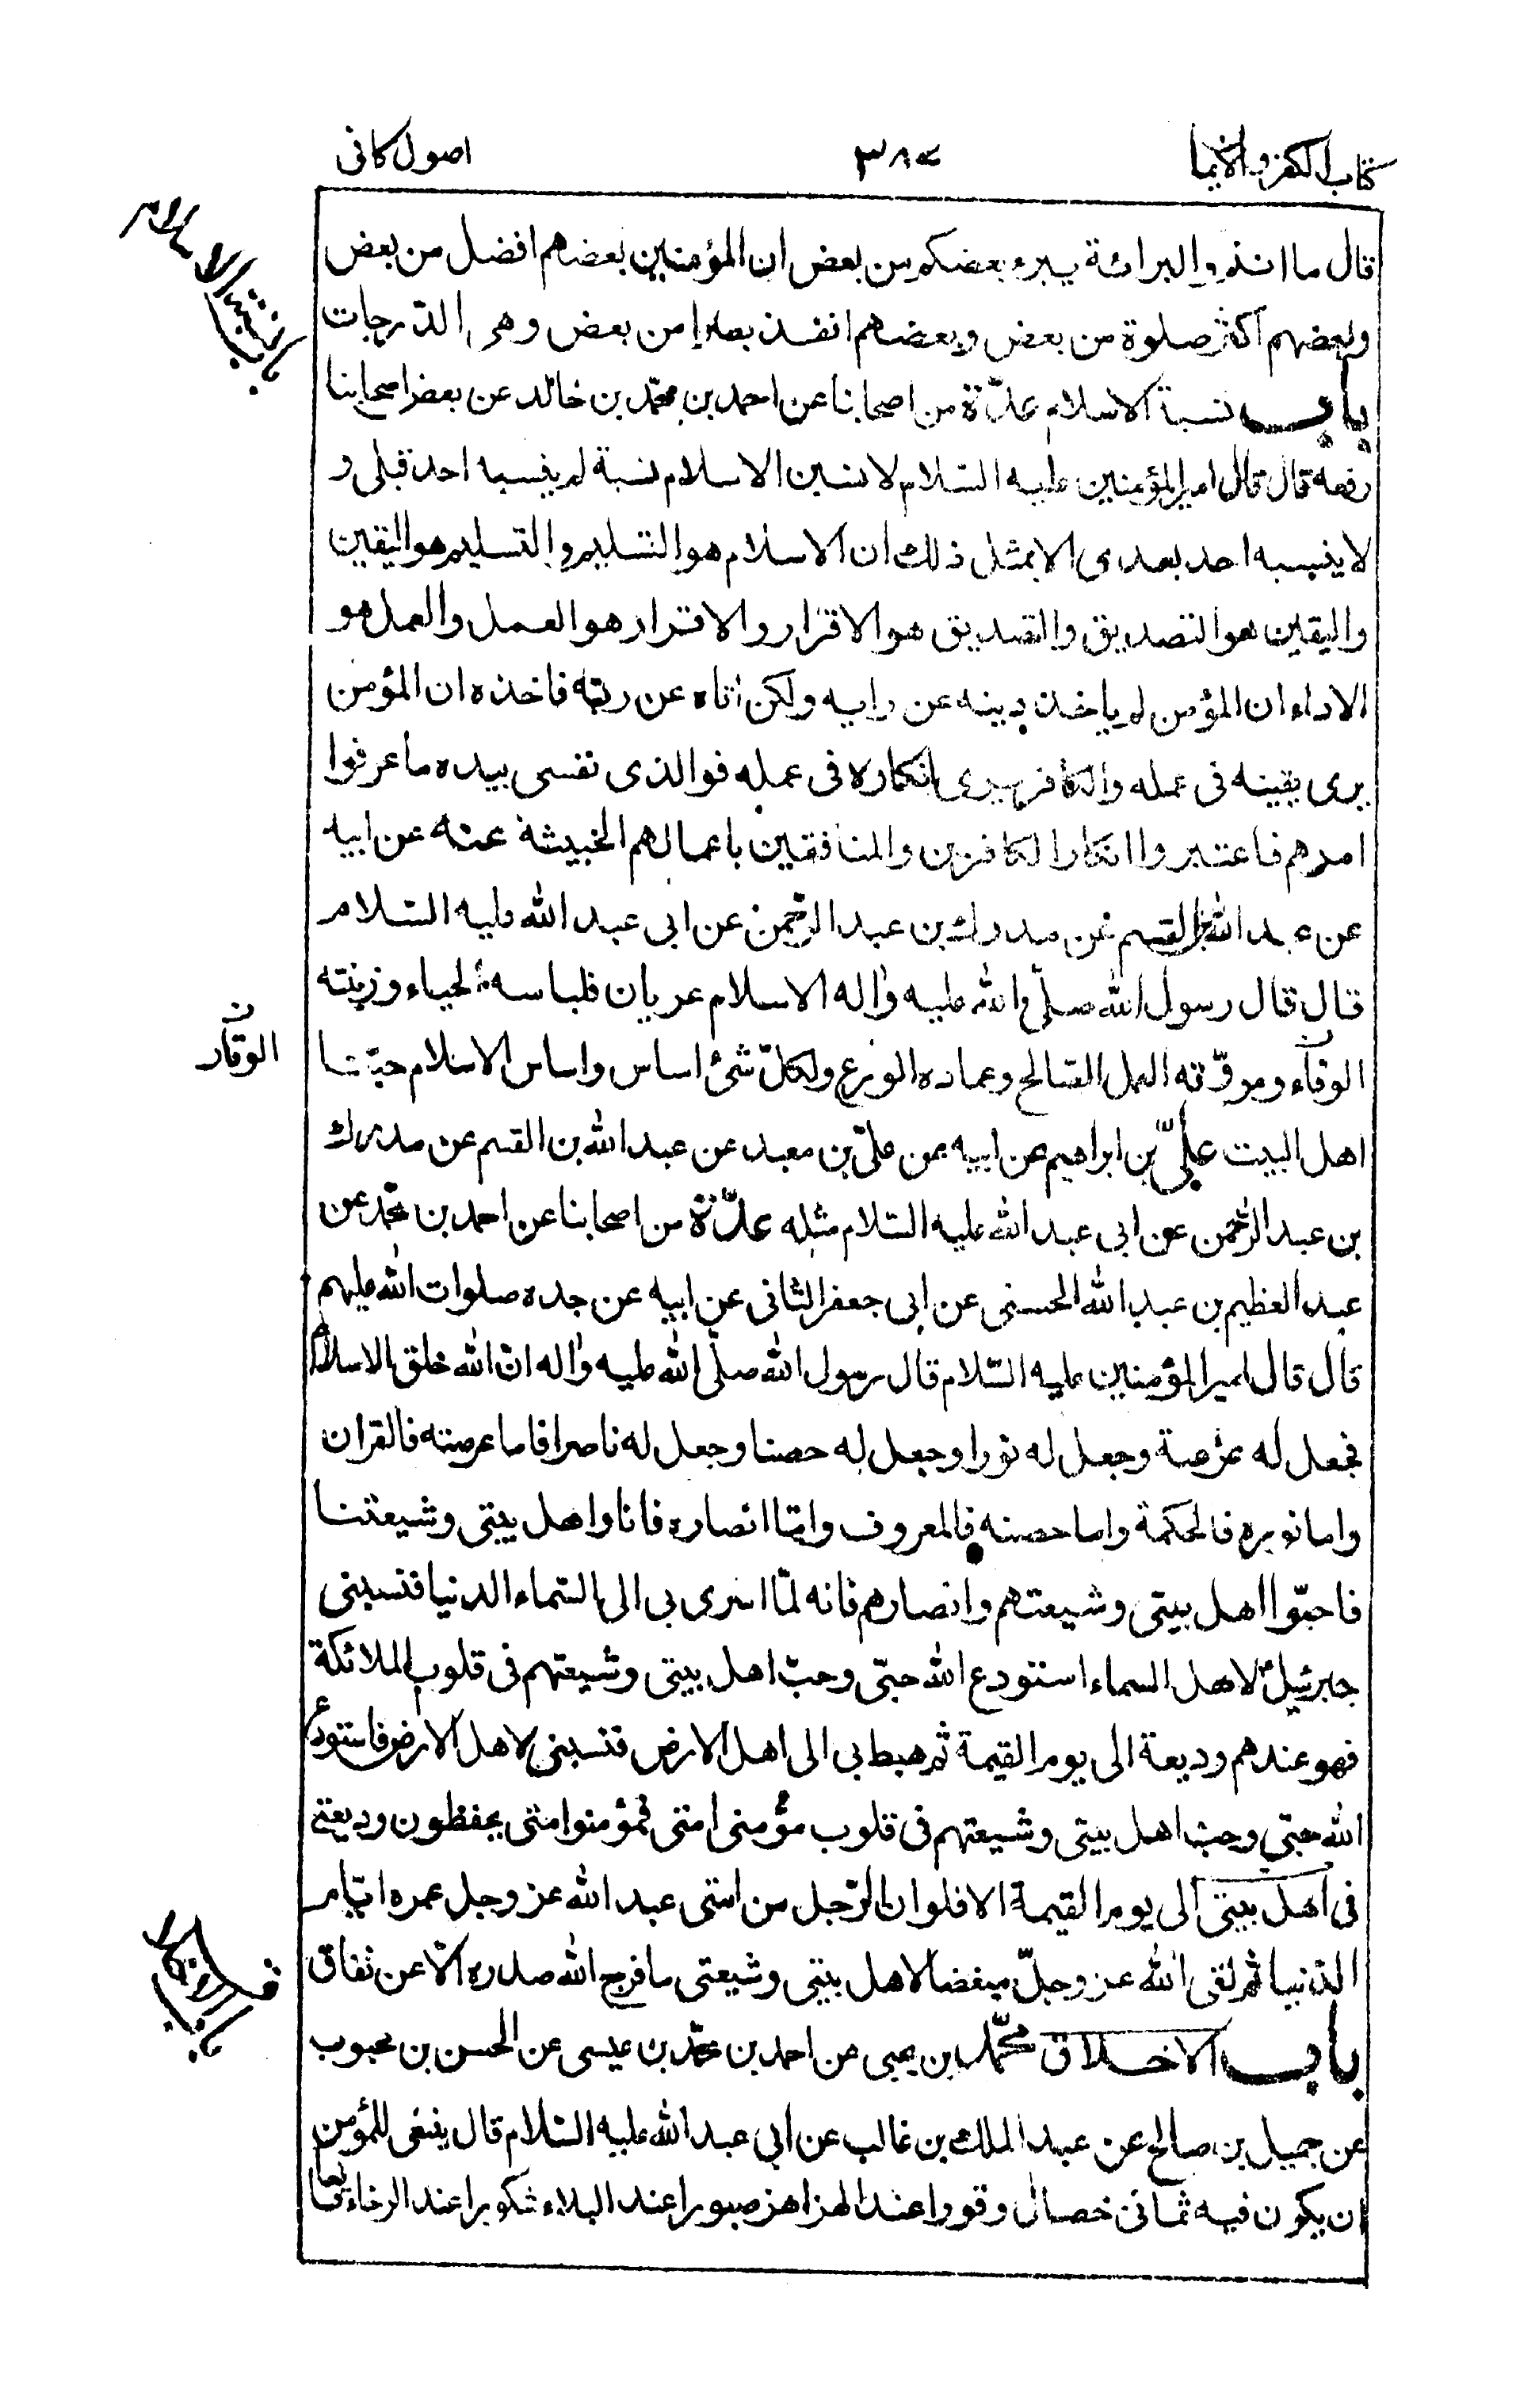 كتاب الكفر والايما
٣٨٤
اصول كافى
قال ما انتم والبرائة يبرء بعضكم من بعض ان المؤمنين بعضهم افضل من بعض
وبعضهم اكثر صلوة من بعض وبعضهم انفذ بصرا من بعض وهى الدّرجات
باب نسبة الاسلام عدّة من اصحابنا عن احمد بن محمّد بن خالد عن بعض اصحابنا
رفعه قال قال امير المؤمنين عليه السّلام لانسبن الاسلام نسبة لم ينسبه احد قبلى و
لا ينسبه احد بعدى الا بمثل ذلك ان الاسلام هو التسليم والتسليم هو اليقين
واليقين هو التصديق والتصديق هو الاقرار والاقرار هو العمل والعمل هو
الاداء ان المؤمن لم ياخذ دينه عن رايه ولكن اتاه عن ربّه فاخذه ان المؤمن
يرى يقينه فى عمله والكافر يرى انكاره فى عمله فوالذى نفسى بيده ما عرفوا
امرهم فاعتبروا انكار الكافرين والمنافقين باعمالهم الخبيثة عنه عن ابيه
عن عبد الله بن القسم عن مدرك بن عبد الرّحمن عن ابى عبد الله عليه السّلام
قال قال رسول الله صلّى الله عليه واله الاسلام عريان فلباسه الحياء وزينته
الوفاء ومروّته العمل الصّالح وعماده الورع ولكلّ شئ اساس واساس الاسلام حبّنا
اهل البيت علىّ بن ابراهيم عن ابيه عن علىّ بن معبد عن عبد الله بن القسم عن مدرك
بن عبد الرّحمن عن ابى عبد الله عليه السّلام مثله عدّة من اصحابنا عن احمد بن محمّد عن
عبد العظيم بن عبد الله الحسنى عن ابى جعفر الثانى عن ابيه عن جده صلوات الله عليهم
قال قال امير المؤمنين عليه السّلام قال رسول الله صلّى الله عليه واله انّ الله خلق الاسلام
فجعل له عرصة وجعل له نورا وجعل له حصنا وجعل له ناصرا فاما عرصته فالقران
واما نوره فالحكمة واما حصنه فالمعروف وامّا انصاره فانا واهل بيتى وشيعتنا
فاحبّوا اهل بيتى وشيعتهم وانصارهم فانه لمّا اسرى بى الى السّماء الدنيا فنسبنى
جبرئيل لاهل السماء استودع الله حبّى وحبّ اهل بيتى وشيعتهم فى قلوب الملائكة
فهو عندهم وديعة الى يوم القيمة ثم هبط بى الى اهل الارض فنسبنى لاهل الارض فاستودع
الله حبّى وحبّ اهل بيتى وشيعتهم فى قلوب مؤمنى امتى فمؤمنوا امتى يحفظون وديعتى
فى اهل بيتى الى يوم القيمة الا فلو ان الرّجل من امتى عبد الله عز وجل عمره ايّام
الدّنيا ثم لقى الله عز وجلّ مبغضا لاهل بيتى وشيعتى ما فرج الله صدره الّا عن نفاق
باب الاخلاق محمّد بن يحيى عن احمد بن محمّد بن عيسى عن الحسن بن محبوب
عن جميل بن صالح عن عبد الملك بن غالب عن ابى عبد الله عليه السّلام قال ينبغى للمؤمن
ان يكون فيه ثمانى خصال وقورا عند الهزاهز صبورا عند البلاء شكورا عند الرخاء قانعا
باب نسبة الاسلام
الوقار ن